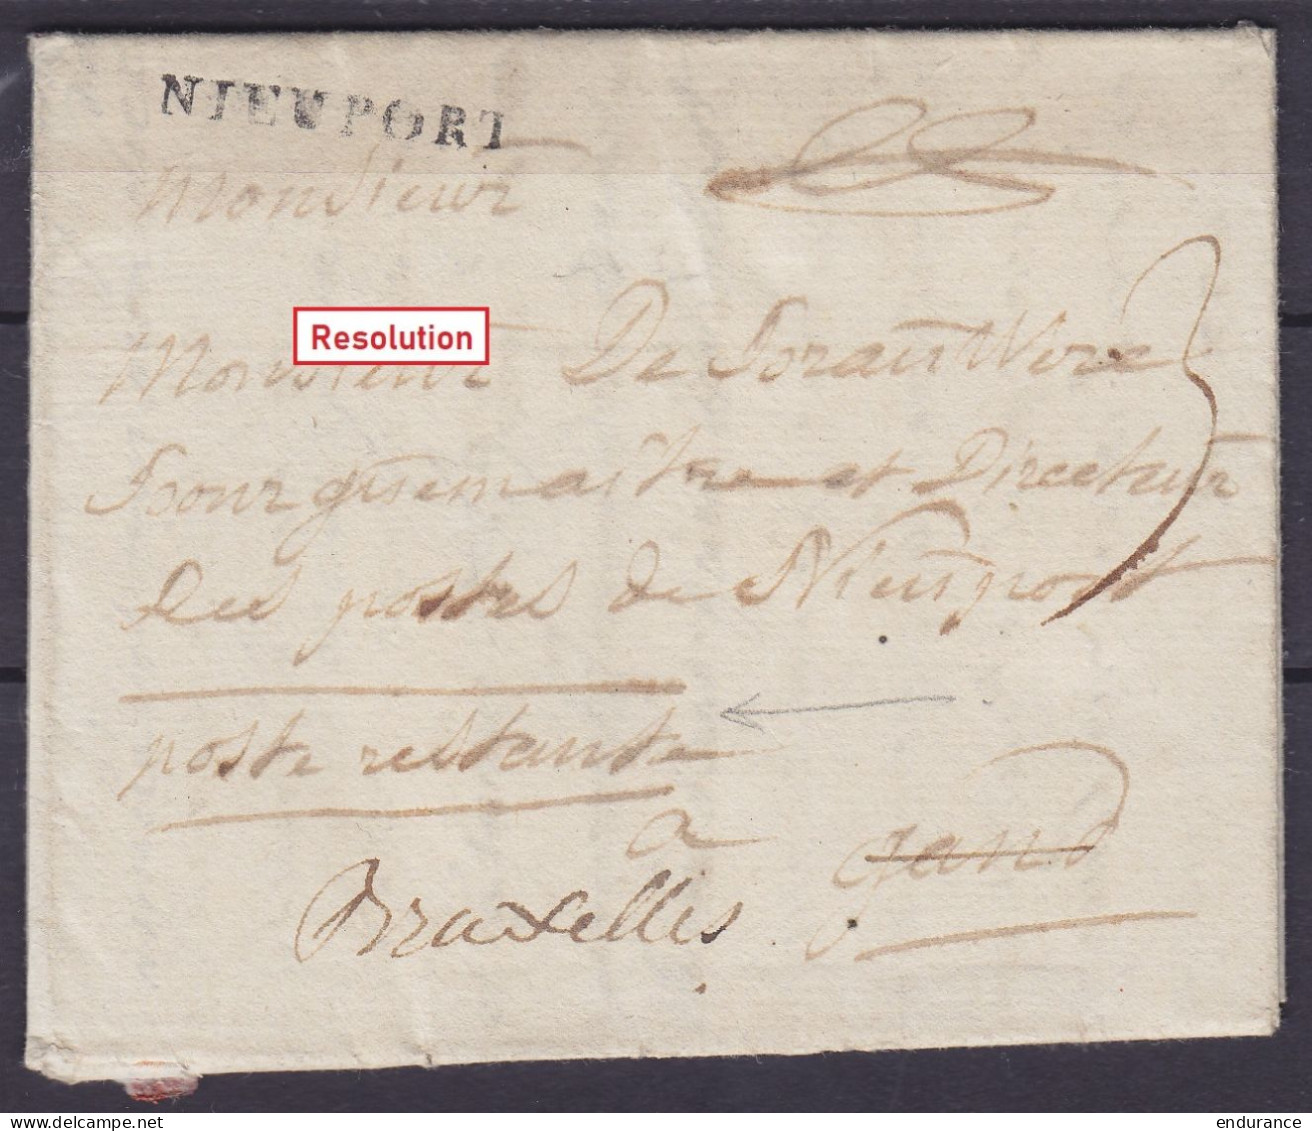 NIEUPORT
Monsieur
Resolution
Monsieur De Brauwere
Bourguemaitre et Directeur
des postes de Nieuport
poste restante
a
gand
Bruxelles
delcampe.net
endurance